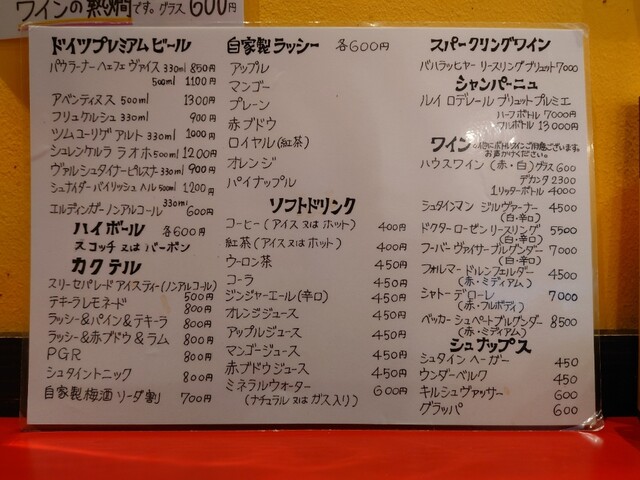 ワインの熱燗です。グラス 600円
ドイツプレミアムビール
パウラーナー ヘェフェ ヴァイス 330ml 850円
500ml 1100円
アベンティヌス 500ml 1300円
フリュケルシュ 330ml 900円
ツムユーリゲ アルト 330ml 1000円
シュレンケルラ ラオホ 500ml 1200円
ヴァルシュタイナーピルスナ 330ml 900円
シュナイダーバイリッシュ ヘル 500ml 1200円
エルディンガーノンアルコール 330ml 600円
ハイボール 各600円
スコッチ 又は バーボン
カクテル
スリーセパレード アイスティー(ノンアルコール)
500円
テキーラレモネード 800円
ラッシー&パイン&テキーラ 800円
ラッシー&赤ブドウ&ラム 800円
PGR 800円
シュタイントニック 800円
自家製梅酒ソーダ割 700円
自家製ラッシー 各600円
アップル
マンゴー
プレーン
赤ブドウ
ロイヤル(紅茶)
オレンジ
パイナップル
ソフトドリンク
コーヒー(アイス又はホット) 400円
紅茶(アイス又はホット) 400円
ウーロン茶 450円
コーラ 450円
ジンジャーエール(辛口) 450円
オレンジジュース 450円
アップルジュース 450円
マンゴージュース 450円
赤ブドウジュース 450円
ミネラルウォーター 600円
(ナチュラル又はガス入り)
スパークリングワイン
バハラッヒャー リースリングブリュット 7000
シャンパーニュ
ルイ ロデレール ブリュットプルミエ
ハーフボトル 7000円
フルボトル 13000円
ワイン
の他にボトルワインご用意ございます。
お声がけください。
ハウスワイン(赤・白)グラス 600
デカンタ 2300
1リッターボトル 4000
シュタインマン ジルヴァーナー 4500
(白・辛口)
ドクターローゼンリースリング 5500
(白・辛口)
フーバー ヴァイサーブルグンダー 7000
(白・辛口)
フォルマードルンフェルダー 4500
(赤・ミディアム)
シャトー デローレ 7000
(赤・フルボディ)
ベッカーシュペートブルグンダー 8500
(赤・ミディアム)
シュナップス
シュタインヘーガー 450
ウンダーベルク 450
キルシュヴァッサー 600
グラッパ 600